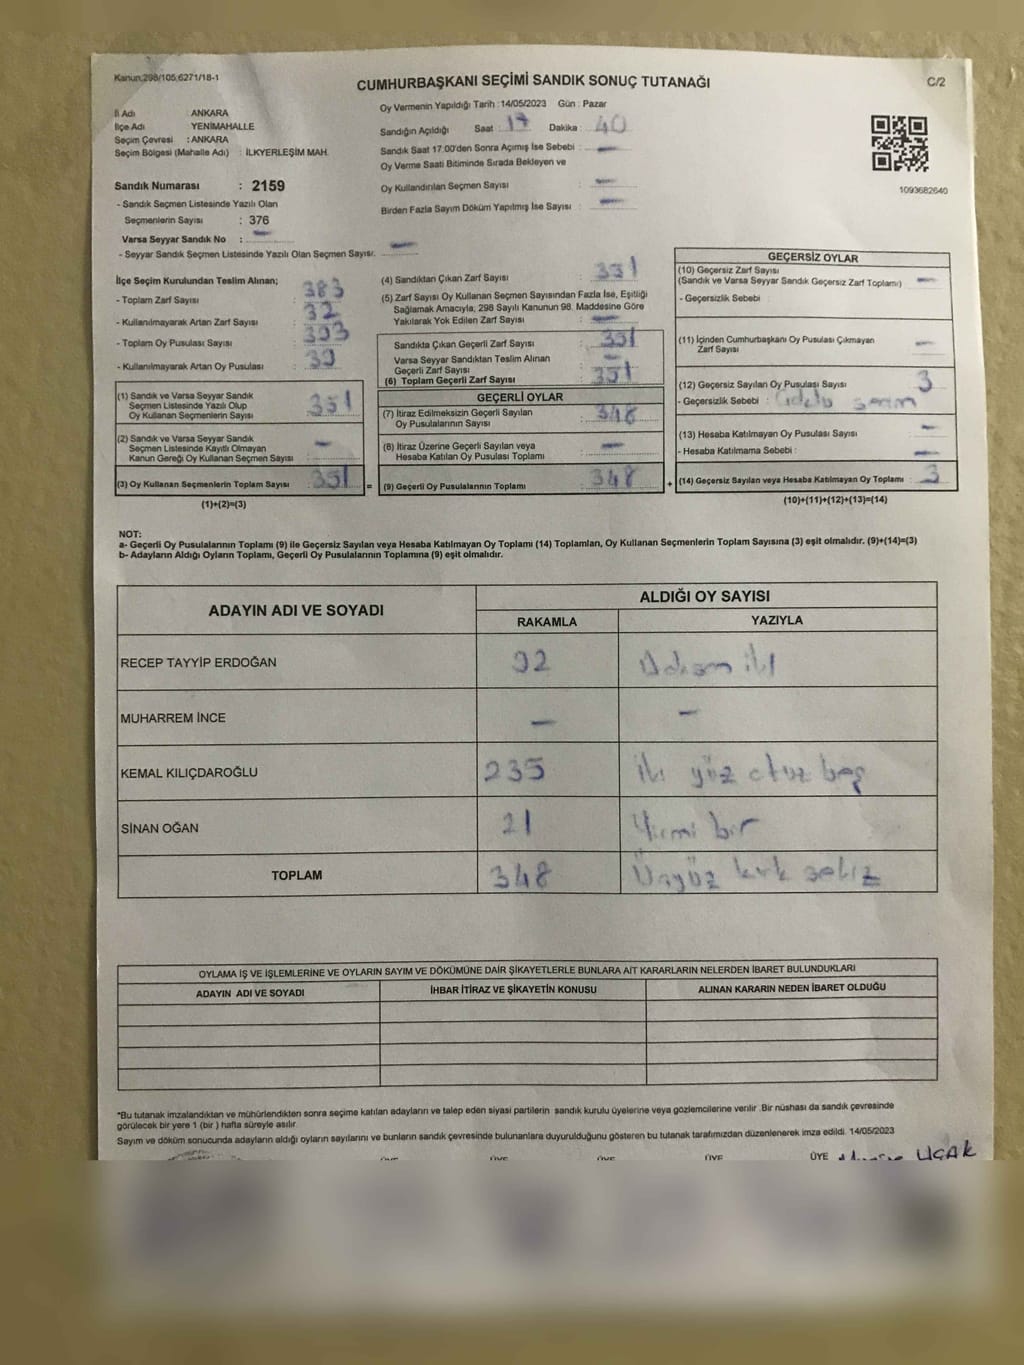 Kanun:298/105,6271/18-1
CUMHURBAŞKANI SEÇİMİ SANDIK SONUÇ TUTANAĞI
C/2
İl Adı : ANKARA
İlçe Adı : YENİMAHALLE
Seçim Çevresi : ANKARA
Seçim Bölgesi (Mahalle Adı) : İLKYERLEŞİM MAH.
Oy Vermenin Yapıldığı Tarih : 14/05/2023 Gün : Pazar
Sandığın Açıldığı Saat : 17 Dakika : 40
Sandık Saat 17:00'den Sonra Açımış İse Sebebi : —
Oy Verme Saati Bitiminde Sırada Bekleyen ve
Oy Kullandırılan Seçmen Sayısı : —
Birden Fazla Sayım Döküm Yapılmış İse Sayısı : —
1093682640
Sandık Numarası : 2159
- Sandık Seçmen Listesinde Yazılı Olan
Seçmenlerin Sayısı : 376
Varsa Seyyar Sandık No : —
- Seyyar Sandık Seçmen Listesinde Yazılı Olan Seçmen Sayısı: —
İlçe Seçim Kurulundan Teslim Alınan;
- Toplam Zarf Sayısı : 383
- Kullanılmayarak Artan Zarf Sayısı : 32
- Toplam Oy Pusulası Sayısı :
- Kullanılmayarak Artan Oy Pusulası :
(1) Sandık ve Varsa Seyyar Sandık
Seçmen Listesinde Yazılı Olup
Oy Kullanan Seçmenlerin Sayısı : 351
(2) Sandık ve Varsa Seyyar Sandık
Seçmen Listesinde Kayıtlı Olmayan
Kanun Gereği Oy Kullanan Seçmen Sayısı : —
(3) Oy Kullanan Seçmenlerin Toplam Sayısı : 351 =
(1)+(2)=(3)
(4) Sandıktan Çıkan Zarf Sayısı : 351
(5) Zarf Sayısı Oy Kullanan Seçmen Sayısından Fazla İse, Eşitliği
Sağlamak Amacıyla, 298 Sayılı Kanunun 98. Maddesine Göre
Yakılarak Yok Edilen Zarf Sayısı : —
Sandıkta Çıkan Geçerli Zarf Sayısı : 351
Varsa Seyyar Sandıktan Teslim Alınan
Geçerli Zarf Sayısı : —
(6) Toplam Geçerli Zarf Sayısı : 351
GEÇERLİ OYLAR
(7) İtiraz Edilmeksizin Geçerli Sayılan
Oy Pusulalarının Sayısı : 348
(8) İtiraz Üzerine Geçerli Sayılan veya
Hesaba Katılan Oy Pusulası Toplamı : —
(9) Geçerli Oy Pusulalarının Toplamı : 348 +
GEÇERSİZ OYLAR
(10) Geçersiz Zarf Sayısı
(Sandık ve Varsa Seyyar Sandık Geçersiz Zarf Toplamı) : —
- Geçersizlik Sebebi :
(11) İçinden Cumhurbaşkanı Oy Pusulası Çıkmayan
Zarf Sayısı : —
(12) Geçersiz Sayılan Oy Pusulası Sayısı : 3
- Geçersizlik Sebebi :
(13) Hesaba Katılmayan Oy Pusulası Sayısı : —
- Hesaba Katılmama Sebebi : —
(14) Geçersiz Sayılan veya Hesaba Katılmayan Oy Toplamı : 3
(10)+(11)+(12)+(13)=(14)
NOT:
a- Geçerli Oy Pusulalarının Toplamı (9) ile Geçersiz Sayılan veya Hesaba Katılmayan Oy Toplamı (14) Toplamları, Oy Kullanan Seçmenlerin Toplam Sayısına (3) eşit olmalıdır. (9)+(14)=(3)
b- Adayların Aldığı Oyların Toplamı, Geçerli Oy Pusulalarının Toplamına (9) eşit olmalıdır.
ADAYIN ADI VE SOYADI
ALDIĞI OY SAYISI
RAKAMLA YAZIYLA
RECEP TAYYİP ERDOĞAN 92 Doksan iki
MUHARREM İNCE — —
KEMAL KILIÇDAROĞLU 235 iki yüz otuz beş
SİNAN OĞAN 21 Yirmi bir
TOPLAM 348 Üçyüz kırk sekiz
OYLAMA İŞ VE İŞLEMLERİNE VE OYLARIN SAYIM VE DÖKÜMÜNE DAİR ŞİKAYETLERLE BUNLARA AİT KARARLARIN NELERDEN İBARET BULUNDUKLARI
ADAYIN ADI VE SOYADI İHBAR İTİRAZ VE ŞİKAYETİN KONUSU ALINAN KARARIN NEDEN İBARET OLDUĞU
*Bu tutanak imzalandıktan ve mühürlendikten sonra seçime katılan adayların ve talep eden siyasi partilerin sandık kurulu üyelerine veya gözlemcilerine verilir .Bir nüshası da sandık çevresinde
görülecek bir yere 1 (bir ) hafta süreyle asılır.
Sayım ve döküm sonucunda adayların aldığı oyların sayılarını ve bunların sandık çevresinde bulunanlara duyurulduğunu gösteren bu tutanak tarafımızdan düzenlenerek imza edildi. 14/05/2023
ÜYE ÜYE ÜYE ÜYE ÜYE UÇAK